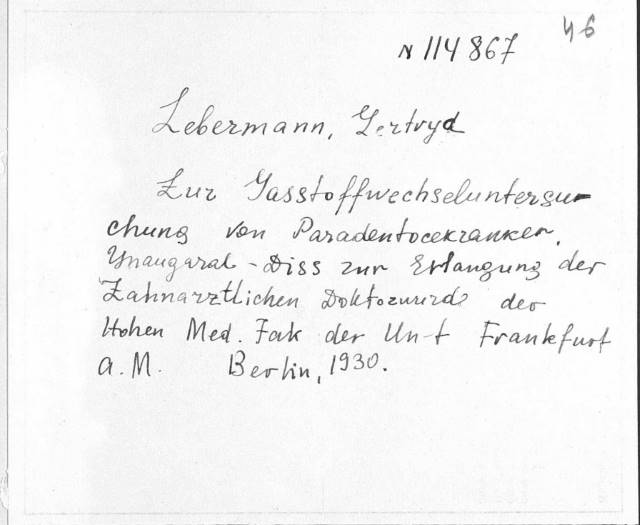 46
N 114 867
Lebermann, Gertryd
Zur Gasstoffwechseluntersu-
chung von Paradentocekranker.
Ynaugaral-Diss zur Erlangung der
Zahnarztlichen Doktorwurde der
Hohen Med. Fak der Un-t Frankfurt
a. M. Berlin, 1930.